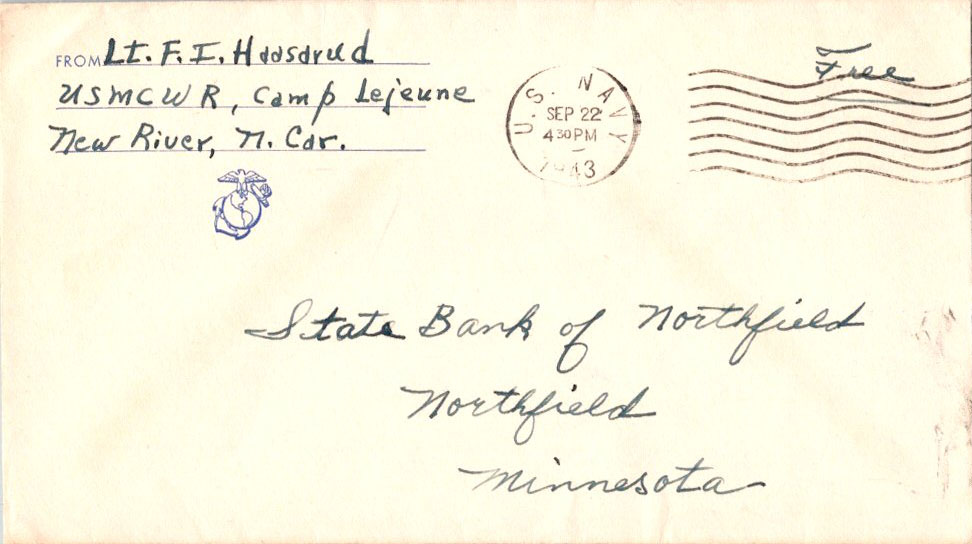 FROM Lt. F. I. Haasarud
USMCWR, Camp Lejeune
New River, N. Car.
U.S. NAVY
SEP 22
4 30 PM
1943
Free
State Bank of Northfield
Northfield
Minnesota